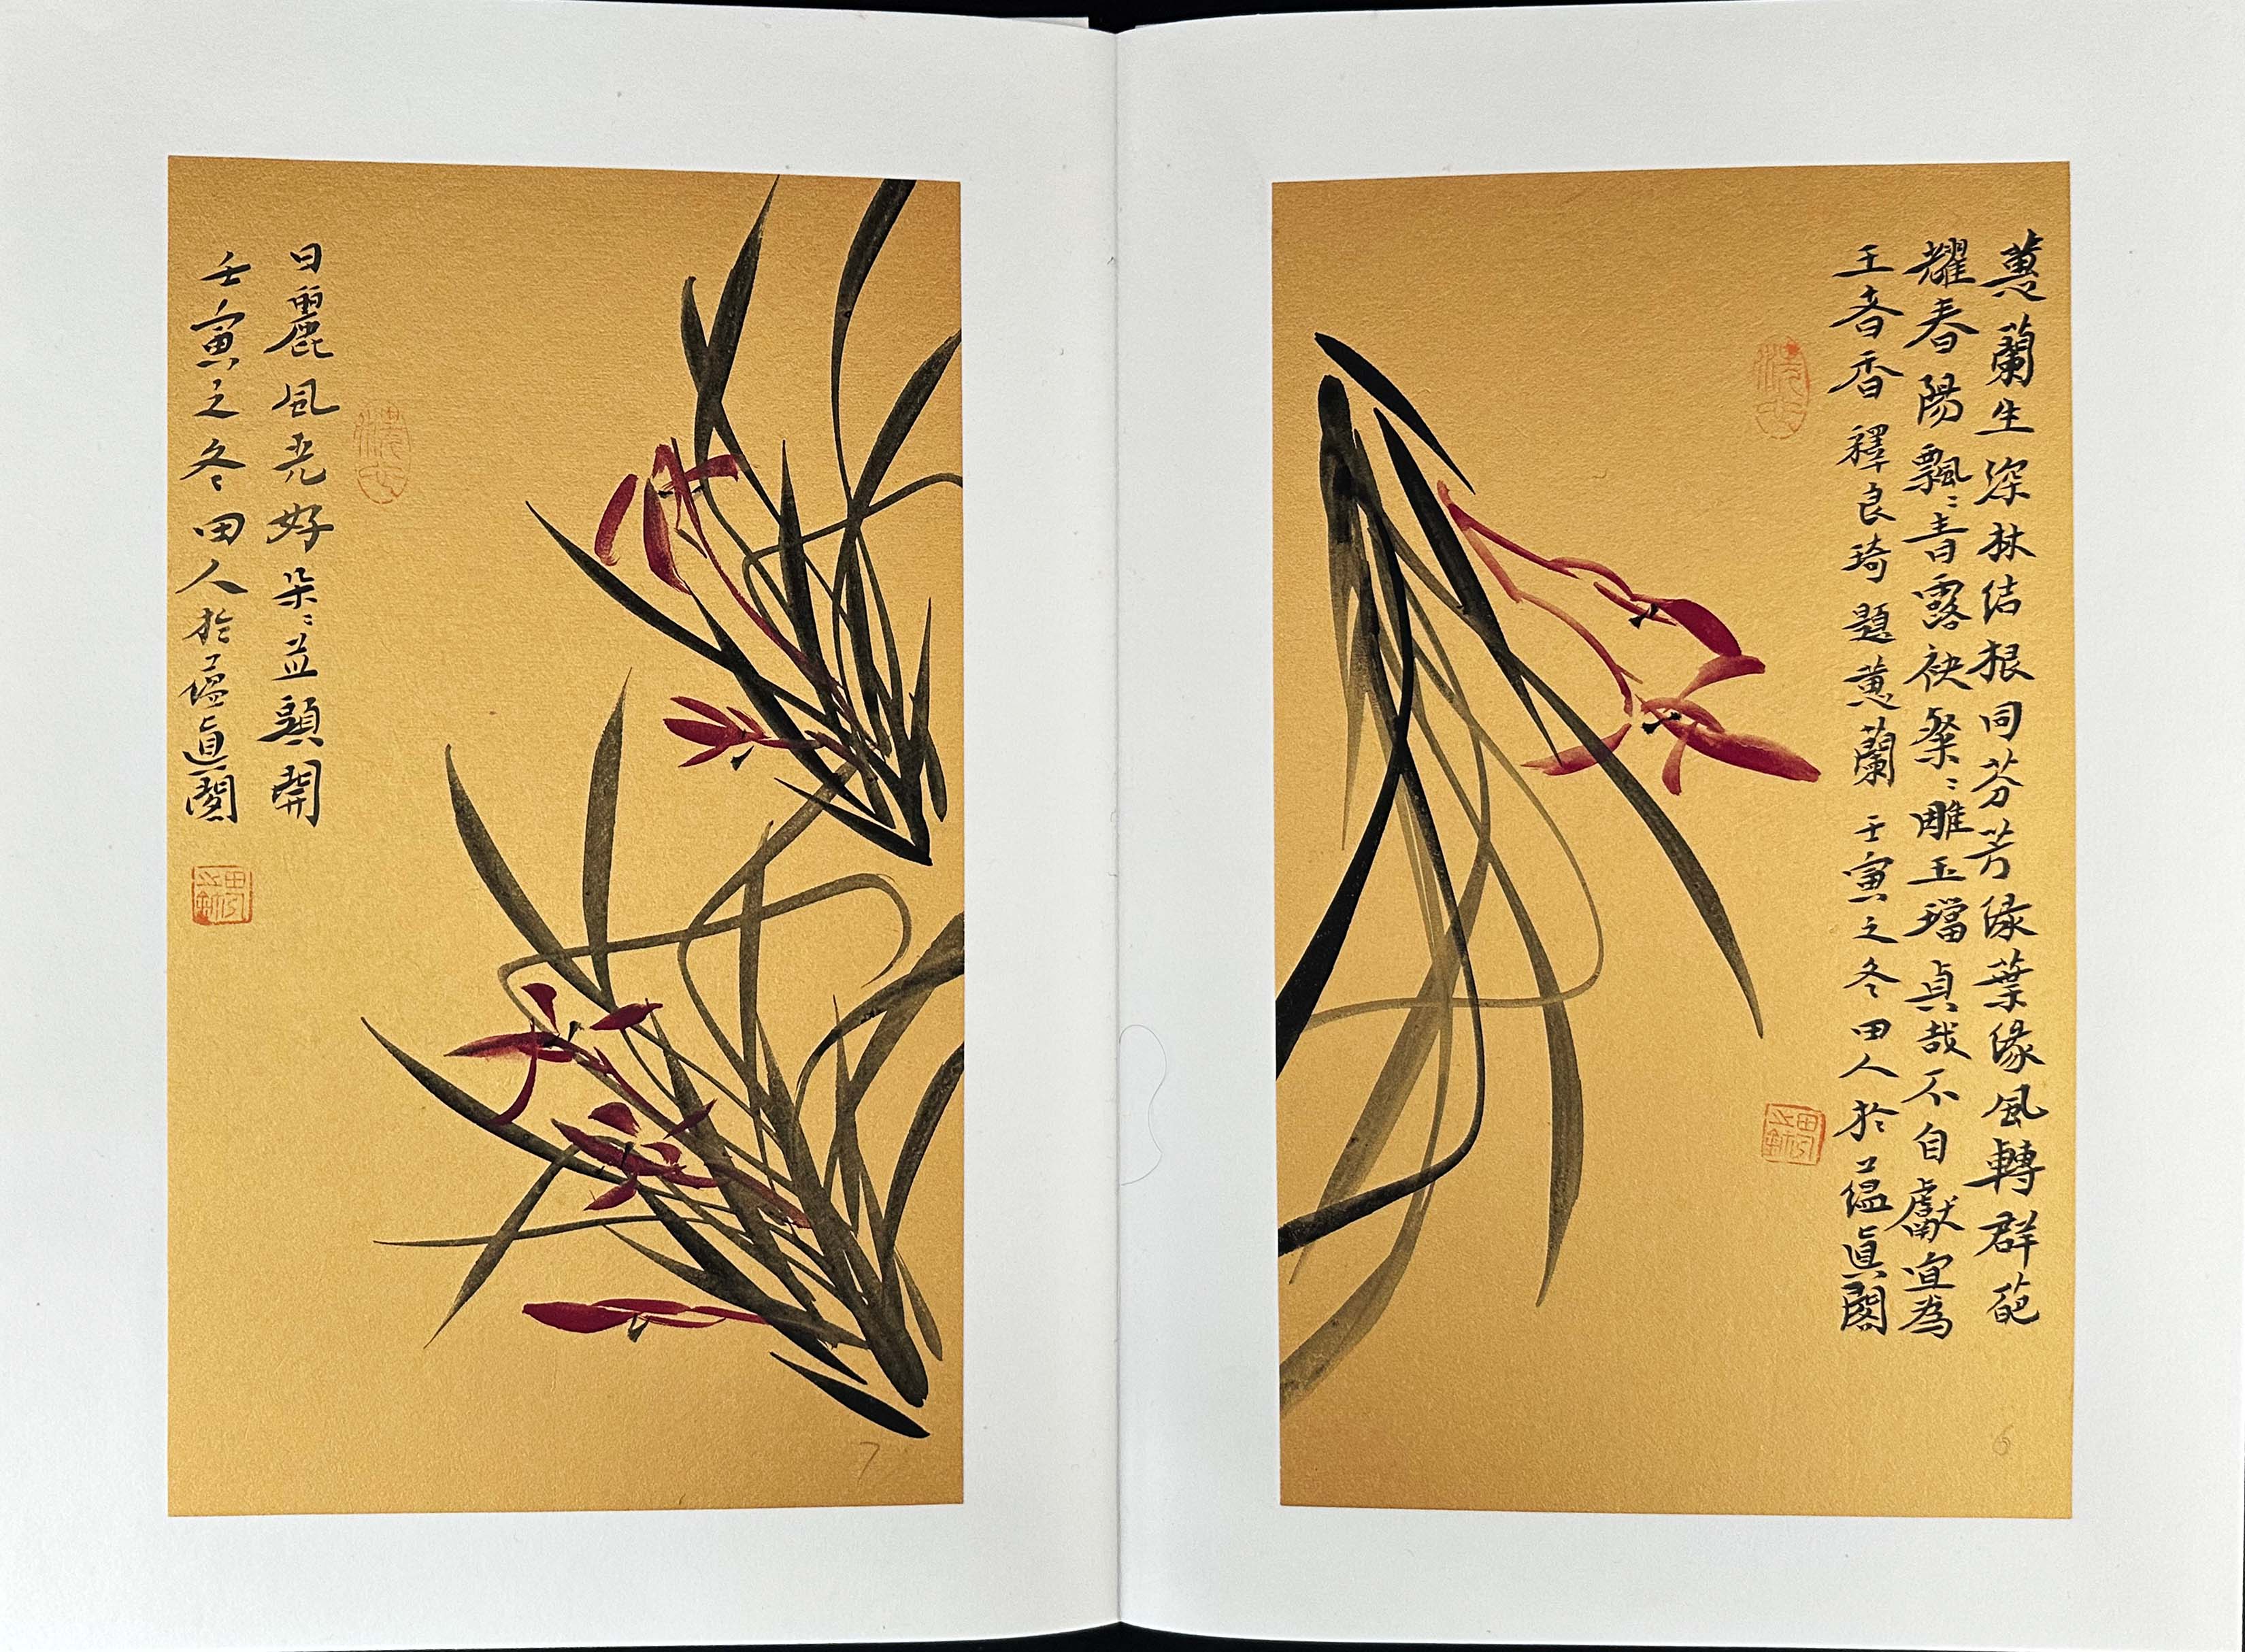 蕙蘭生深林結根同芬芳緑葉緣風轉群葩
耀春陽飄〻青露袂粲〻雕玉璫貞哉不自獻宜為
王者香 釋良琦題蕙蘭 壬寅之冬田人於蕴眞閣
6
日麗風光好朵〻並頭開
壬寅之冬田人於蕴眞閣
7